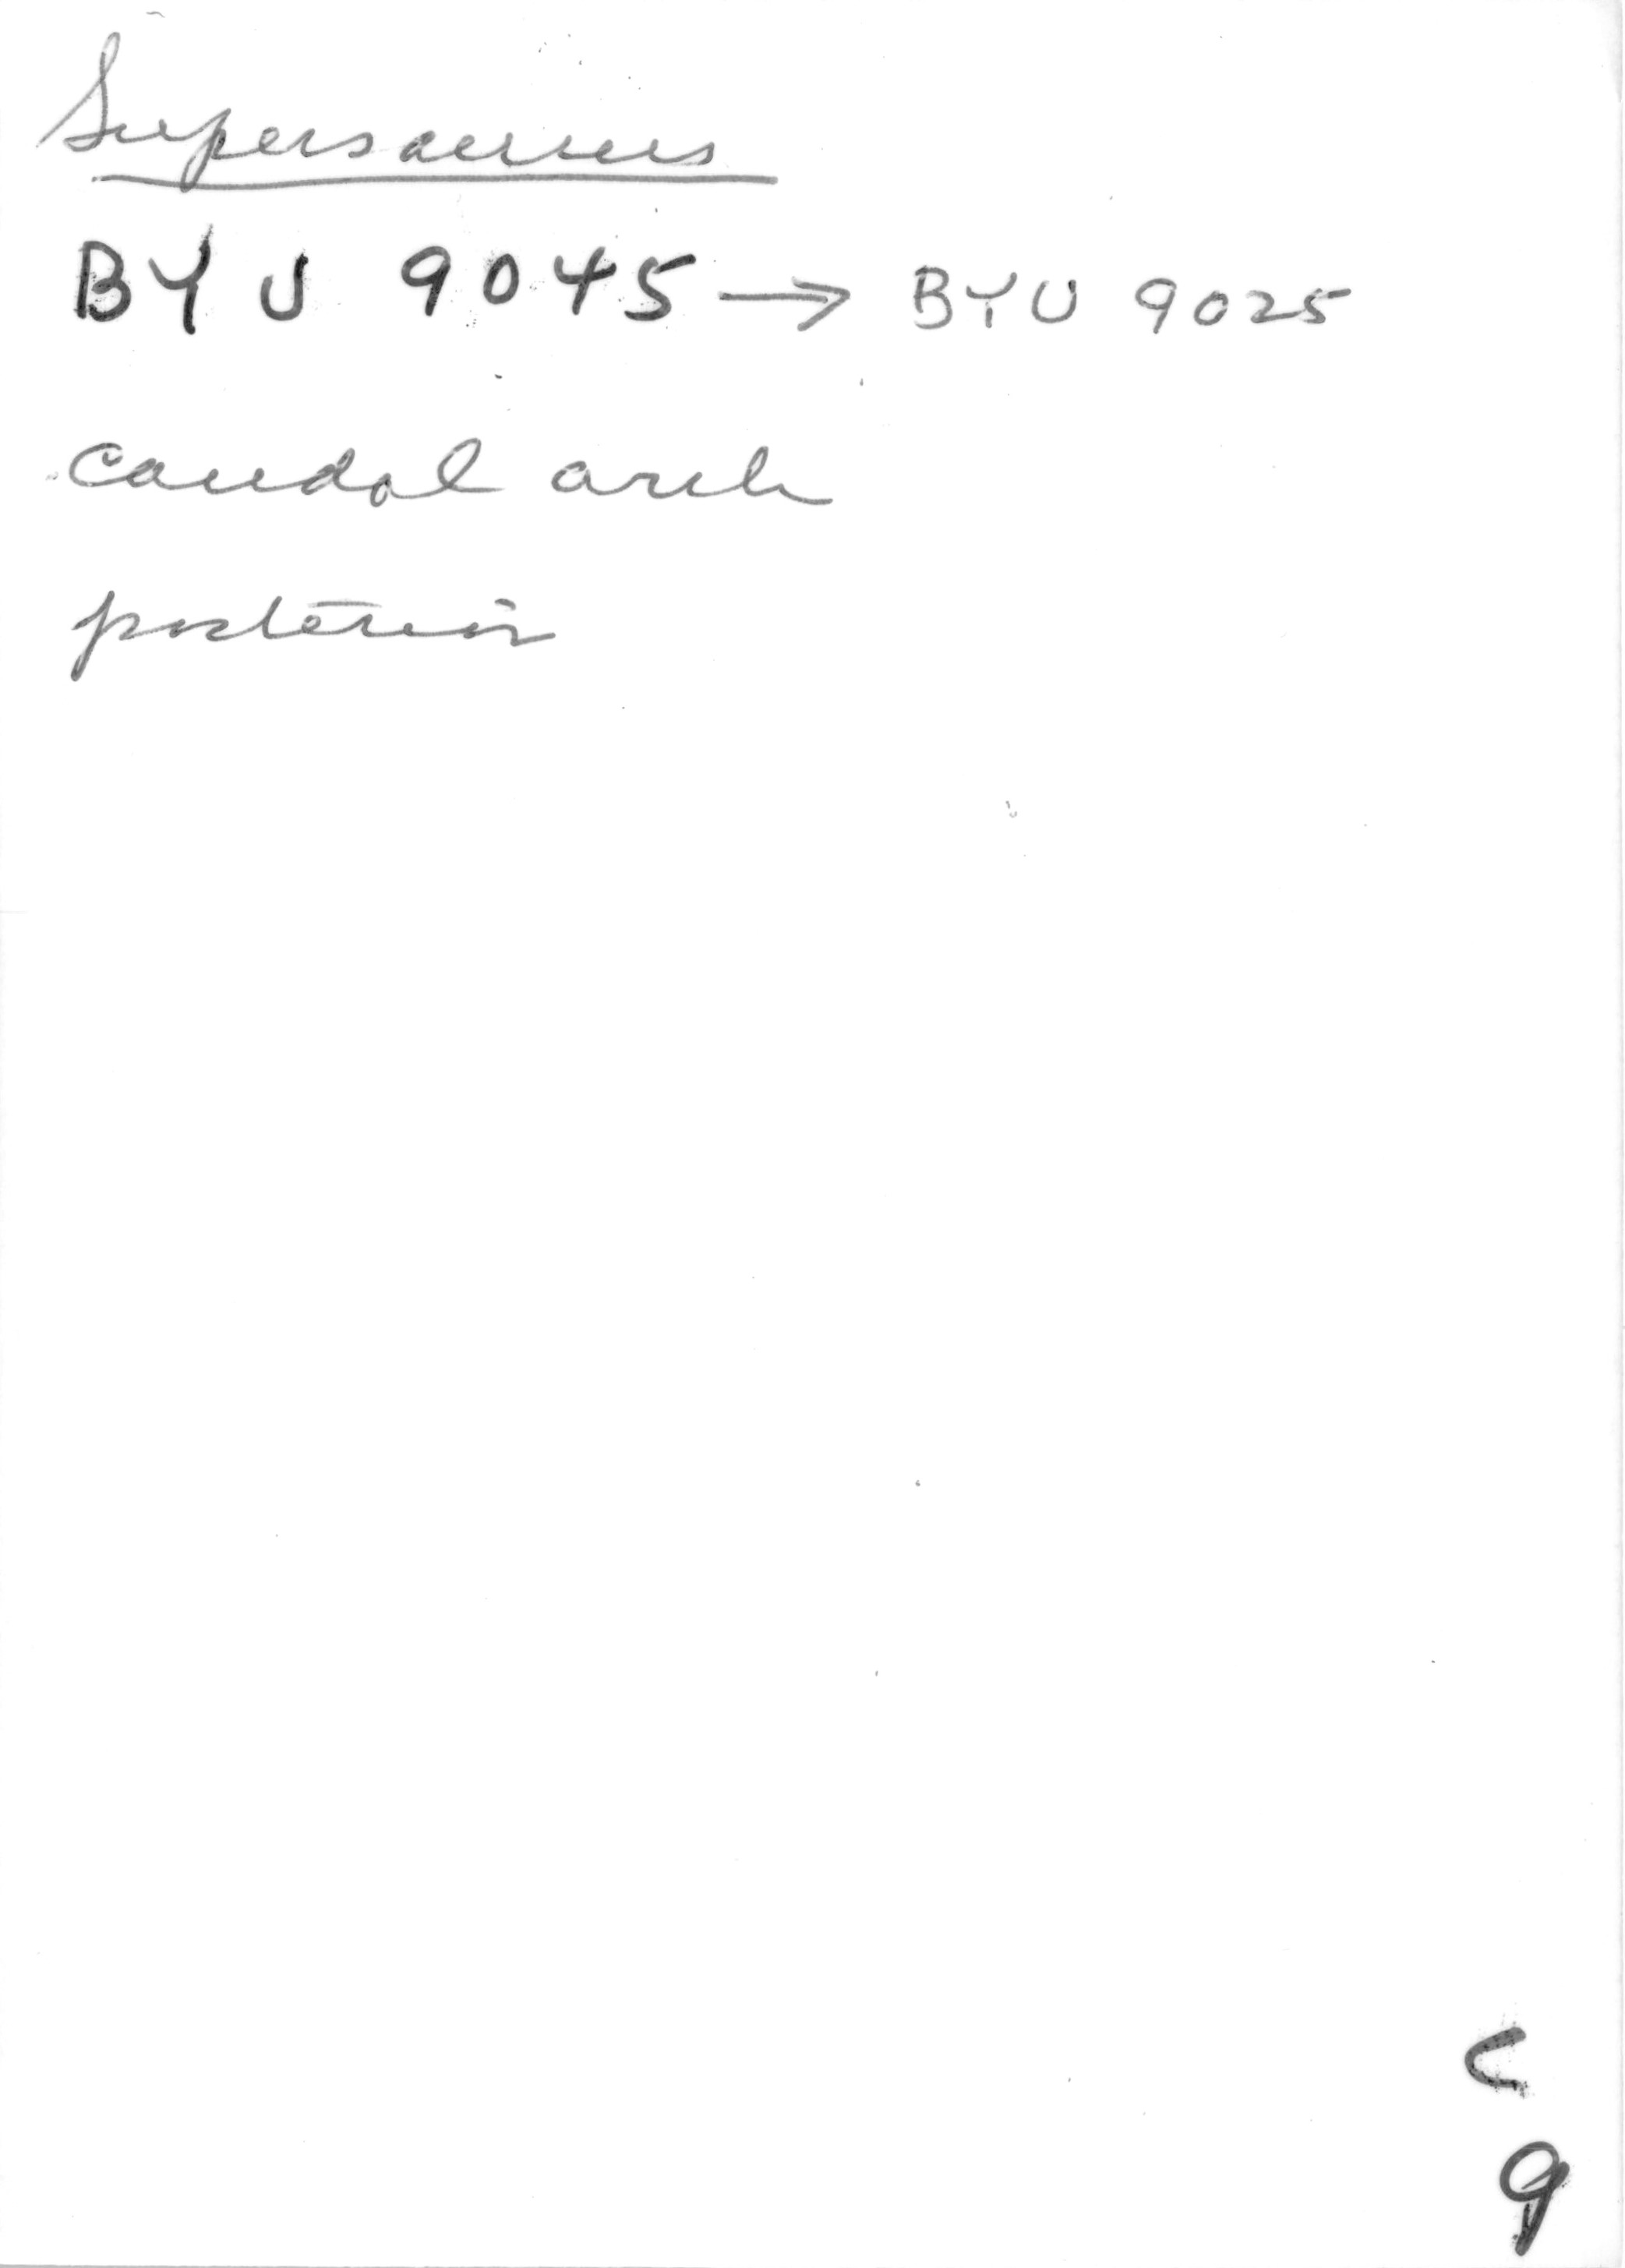 Supersaurus
BYU 9045 → BYU 9025
caudal arch
posterior
C
9